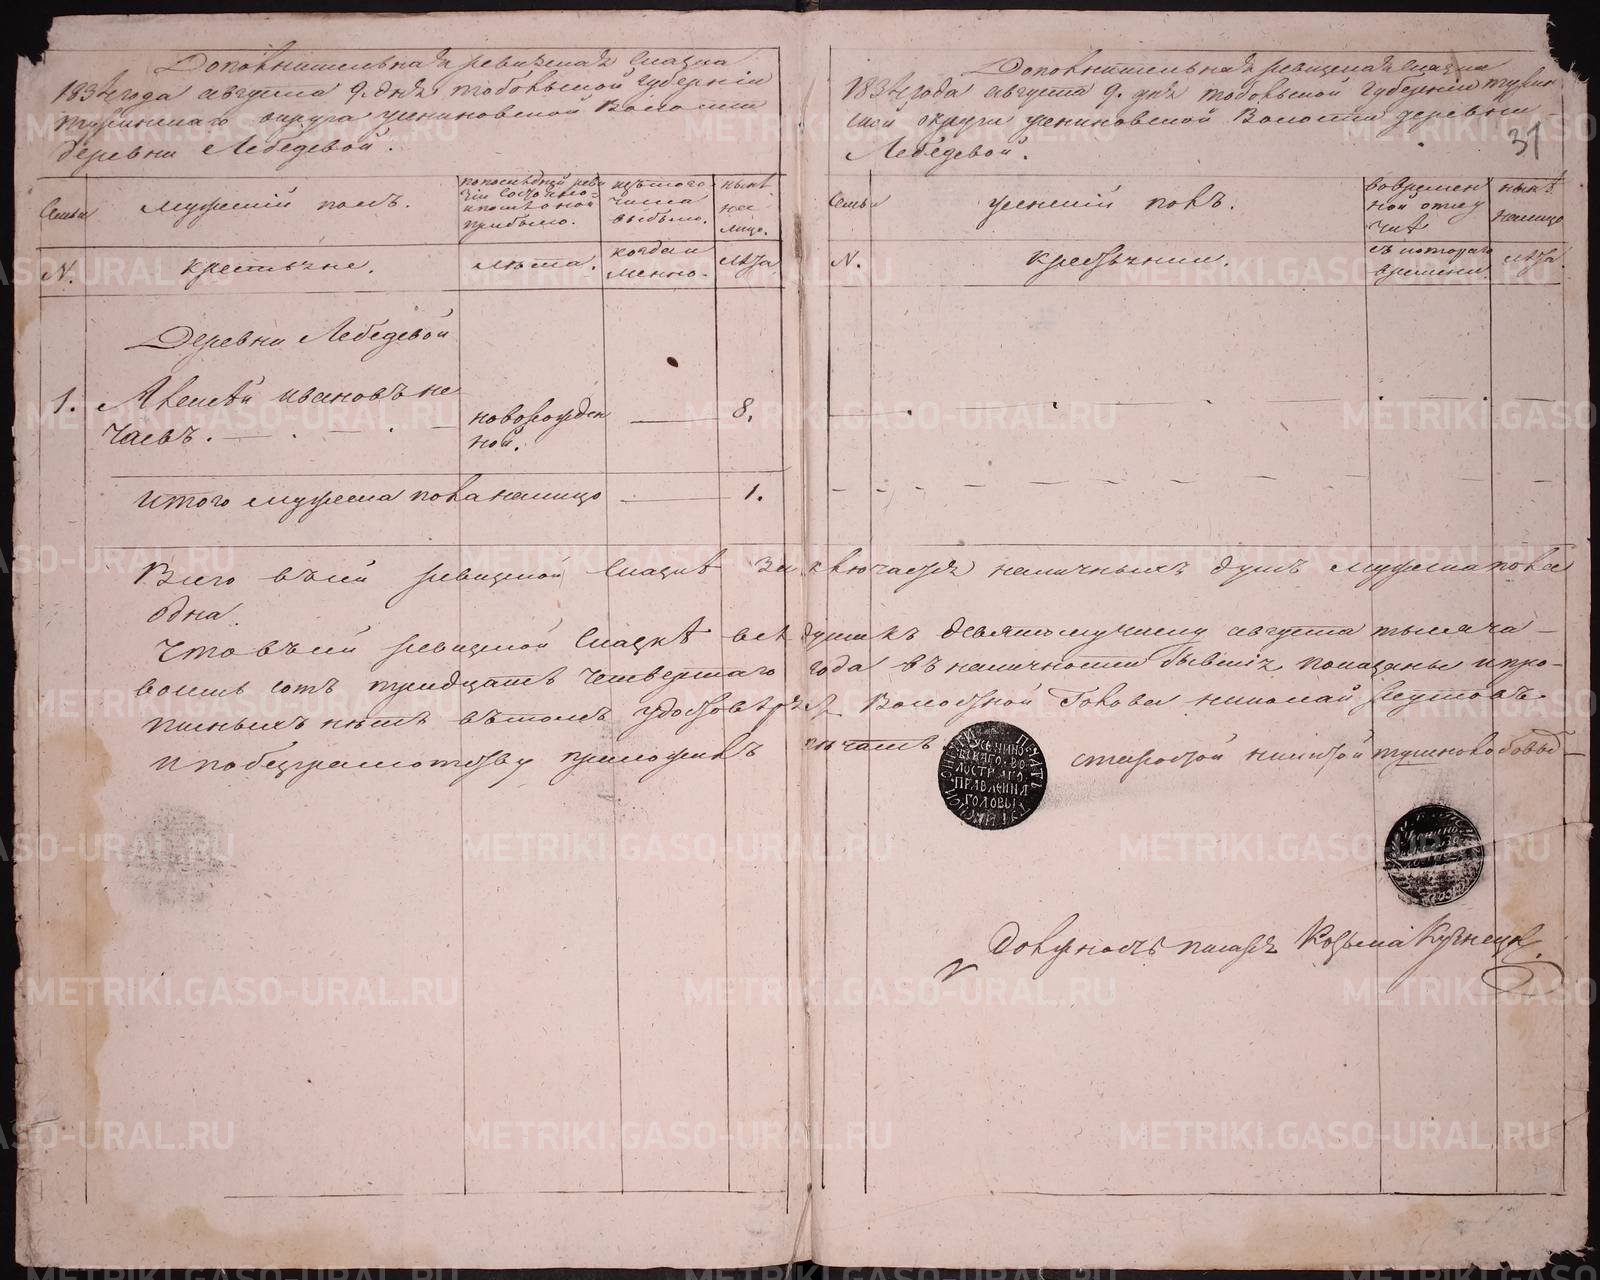 Дополнительная ревизская сказка
1834 года августа 9. дня тобольской губернии
туринскаго округа усениновской волости
деревни Лебедевой.
Семьи
мужеский полъ.
по последней реви
зіи состояло
и после оной
прибыло.
изъ того
числа
выбыло.
ныне
на
лицо.
N.
крестьяне.
лета.
когда и
менно.
лета
Деревни Лебедевой
1.
Авксентий ивановъ не
чаевъ.
новорожден
ной.
8.
итого мужеска пола налицо
1.
Дополнительная ревизская сказка
1834 года августа 9. дня тобольской губернии турин
ской округи усениновской волости деревни
Лебедевой.
31
Семьи
женский полъ.
вовремен
ной отлу
чке
ныне
налицо
N.
крестьянки.
съ котораго
времени.
лета.
Всего въсей ревизской сказке заключается наличныхъ душъ мужеска пола
одна.
Что въсей ревизской сказке все души къ девятому числу августа тысяча
восемь сотъ тридцать четвертаго года въ наличности бывшие показаны и про-
писныхъ нетъ въ томъ удостоверяет Волостной Голова николай Реутовъ
и по безграмотству приложилъ печать
старостой никитой
ПЕЧАТЬ ТУРИНСКОЙ ОКРУГИ
УСЕНИНО
ВСКАГО ВО
ЛОСТНАГО
ПРАВЛЕНИЯ
ГОЛОВЫ
Должность писаря Козьма Кузнецов.
METRIKI.GASO-URAL.RU